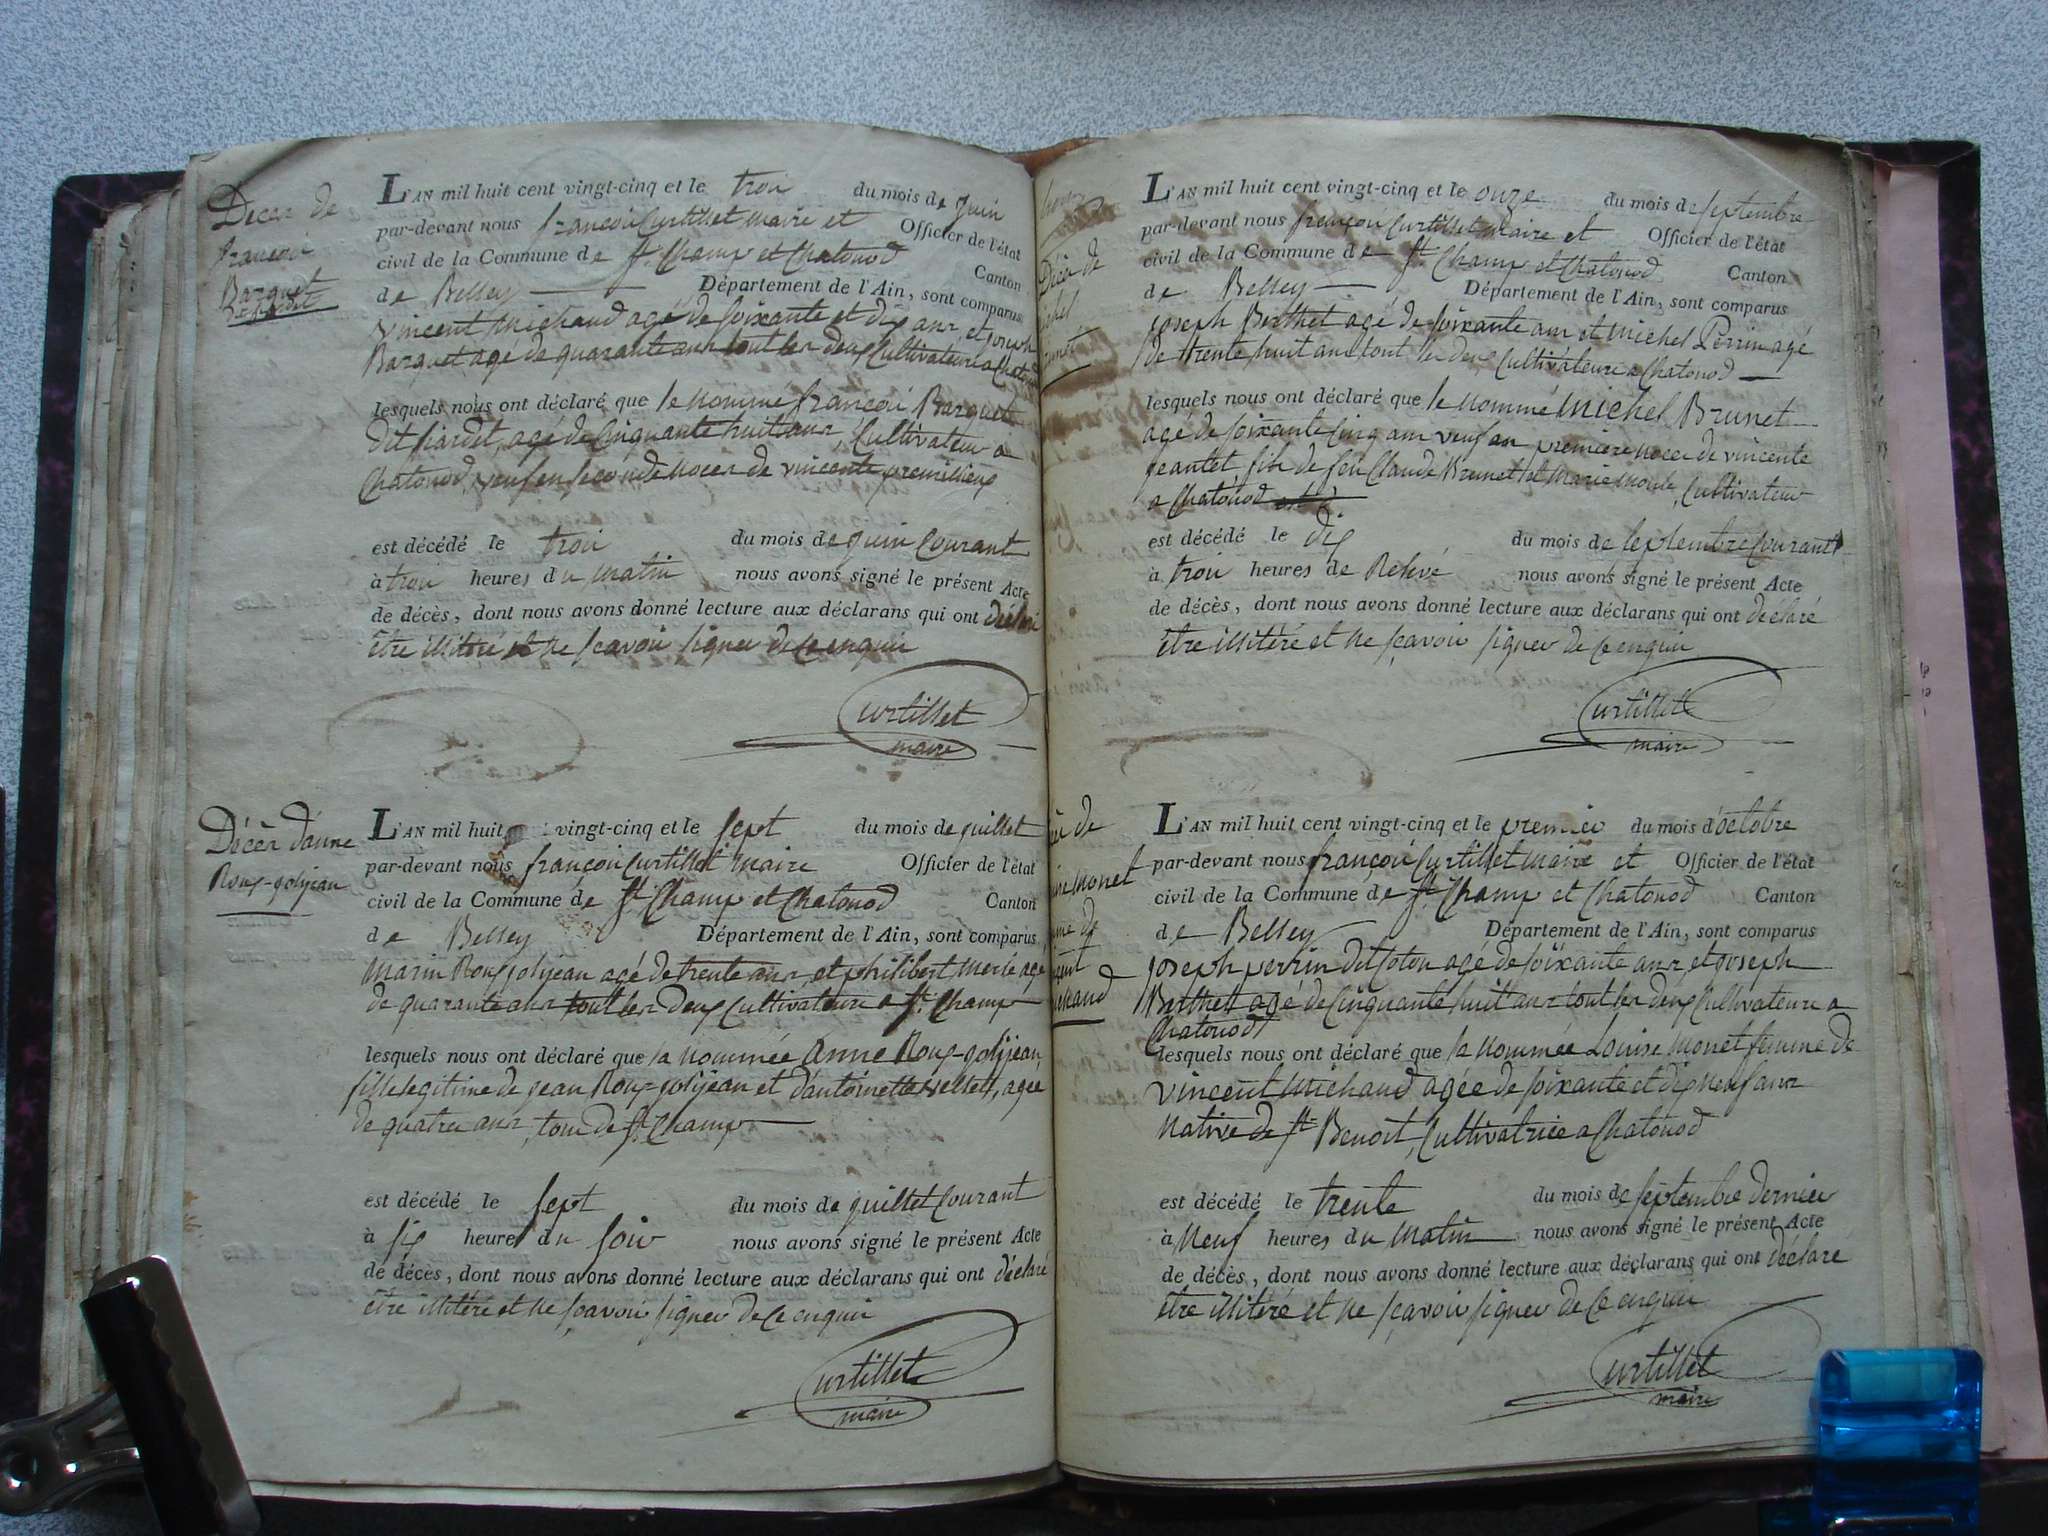 Décès de
françois
Barquet
L'AN mil huit cent vingt-cinq et le trois du mois de juin
par-devant nous françois Curtillet maire et Officier de l'état
civil de la Commune de St. Champ et Chatonod Canton
de Belley Département de l'Ain, sont comparus
vincent Michaud agé de soixante et dix ans, et joseph
Barquet agé de quarante ans tout les deux Cultivateurs a Chatonod
lesquels nous ont déclaré que le nommé françois Barquet
dit agé de Cinquante huit ans, Cultivateur a
Chatonod, veuf en seconde noces de vincente
est décédé le trois du mois de juin Courant
à trois heures du matin nous avons signé le présent Acte
de décès, dont nous avons donné lecture aux déclarans qui ont déclaré
être illitéré et ne sçavoir signer de ce enquis
Curtillet
maire
Décès d'anne
Roux-jolijean
L'AN mil huit vingt-cinq et le sept du mois de juillet
par-devant nous françois Curtillet maire Officier de l'état
civil de la Commune de St. Champ et Chatonod Canton
de Belley Département de l'Ain, sont comparus
Marin Roux jolijean agé de trente ans, et philibert Merle agé
de quarante ans tout les deux Cultivateurs a St. Champ
lesquels nous ont déclaré que la nommée Anne Roux-jolijean
fille legitime de jean Roux-jolijean et d'antoinette agée
de quatre ans, tous de St. Champ
est décédé le sept du mois de juillet Courant
à six heures du soir nous avons signé le présent Acte
de décès, dont nous avons donné lecture aux déclarans qui ont déclaré
être illitéré et ne sçavoir signer de ce enquis
Curtillet
maire
Décès de
L'AN mil huit cent vingt-cinq et le onze du mois de septembre
par-devant nous françois Curtillet maire et Officier de l'état
civil de la Commune de St. Champ et Chatonod Canton
de Belley Département de l'Ain, sont comparus
joseph Berthet agé de soixante ans et michel Perrin agé
de trente huit ans tout les deux Cultivateurs a Chatonod
lesquels nous ont déclaré que le nommé Michel Brunet
agé de soixante Cinq ans veuf en première noces de vincente
jeantet fils de feu Claude Brunet et Marie Cultivateur
a Chatonod
est décédé le dix du mois de septembre Courant
à trois heures de Relevé nous avons signé le présent Acte
de décès, dont nous avons donné lecture aux déclarans qui ont déclaré
être illitéré et ne sçavoir signer de ce enquis
Curtillet
maire
L'AN mil huit cent vingt-cinq et le premier du mois d'octobre
par-devant nous françois Curtillet maire et Officier de l'état
civil de la Commune de St. Champ et Chatonod Canton
de Belley Département de l'Ain, sont comparus
joseph perrin dit Coton agé de soixante ans, et joseph
Berthet agé de Cinquante huit ans tout les deux Cultivateurs a
Chatonod
lesquels nous ont déclaré que la nommée Louise Monet femme de
vincent Michaud agée de soixante et dix neuf ans
Native de St. Benoit, Cultivatrice a Chatonod
est décédé le trente du mois de septembre dernier
à Neuf heures du Matin nous avons signé le présent Acte
de décès, dont nous avons donné lecture aux déclarans qui ont déclaré
être illitéré et ne sçavoir signer de ce enquis
Curtillet
maire